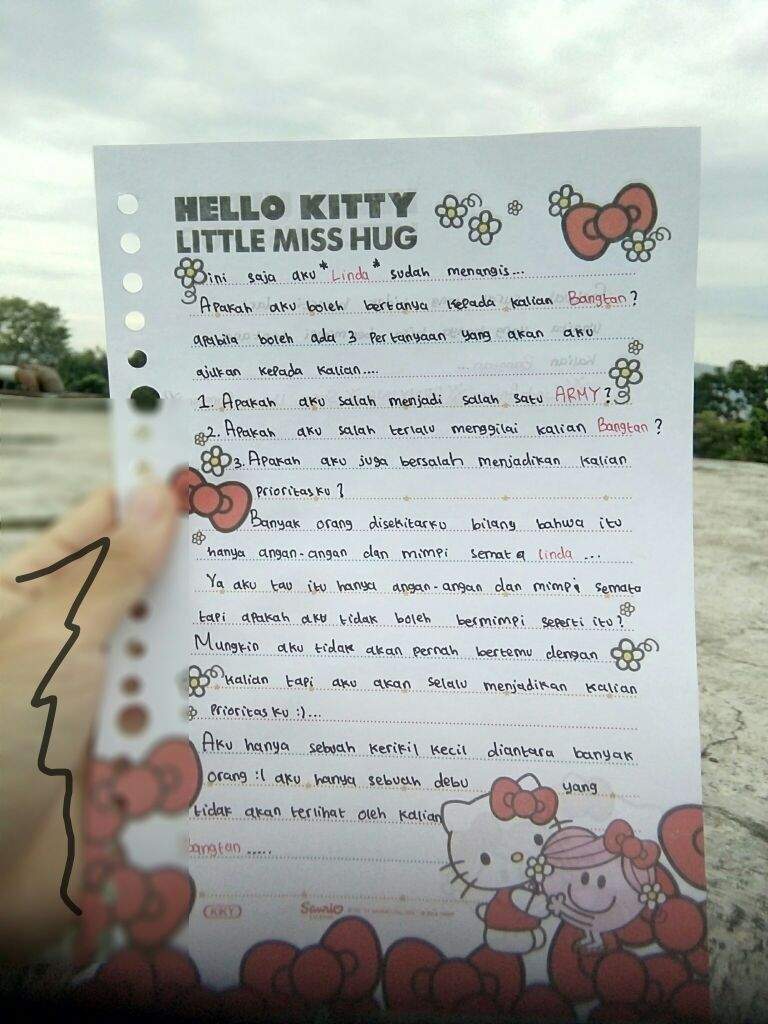 HELLO KITTY
LITTLE MISS HUG
Dini saja aku *Linda* sudah menangis...
Apakah aku boleh bertanya kepada kalian Bangtan?
apabila boleh ada 3 pertanyaan yang akan aku
ajukan kepada kalian....
1. Apakah aku salah menjadi salah satu ARMY?
2. Apakah aku salah terlalu menggilai kalian Bangtan?
3. Apakah aku juga bersalah menjadikan kalian
prioritasku?
Banyak orang disekitarku bilang bahwa itu
hanya angan-angan dan mimpi semata linda ...
Ya aku tau itu hanya angan-angan dan mimpi semata
tapi apakah aku tidak boleh bermimpi seperti itu?
Mungkin aku tidak akan pernah bertemu dengan
kalian tapi aku akan selalu menjadikan kalian
prioritasku :)...
Aku hanya sebuah kerikil kecil diantara banyak
orang :( aku hanya sebuah debu yang
tidak akan terlihat oleh kalian
bangtan .....
KKY
Sanrio